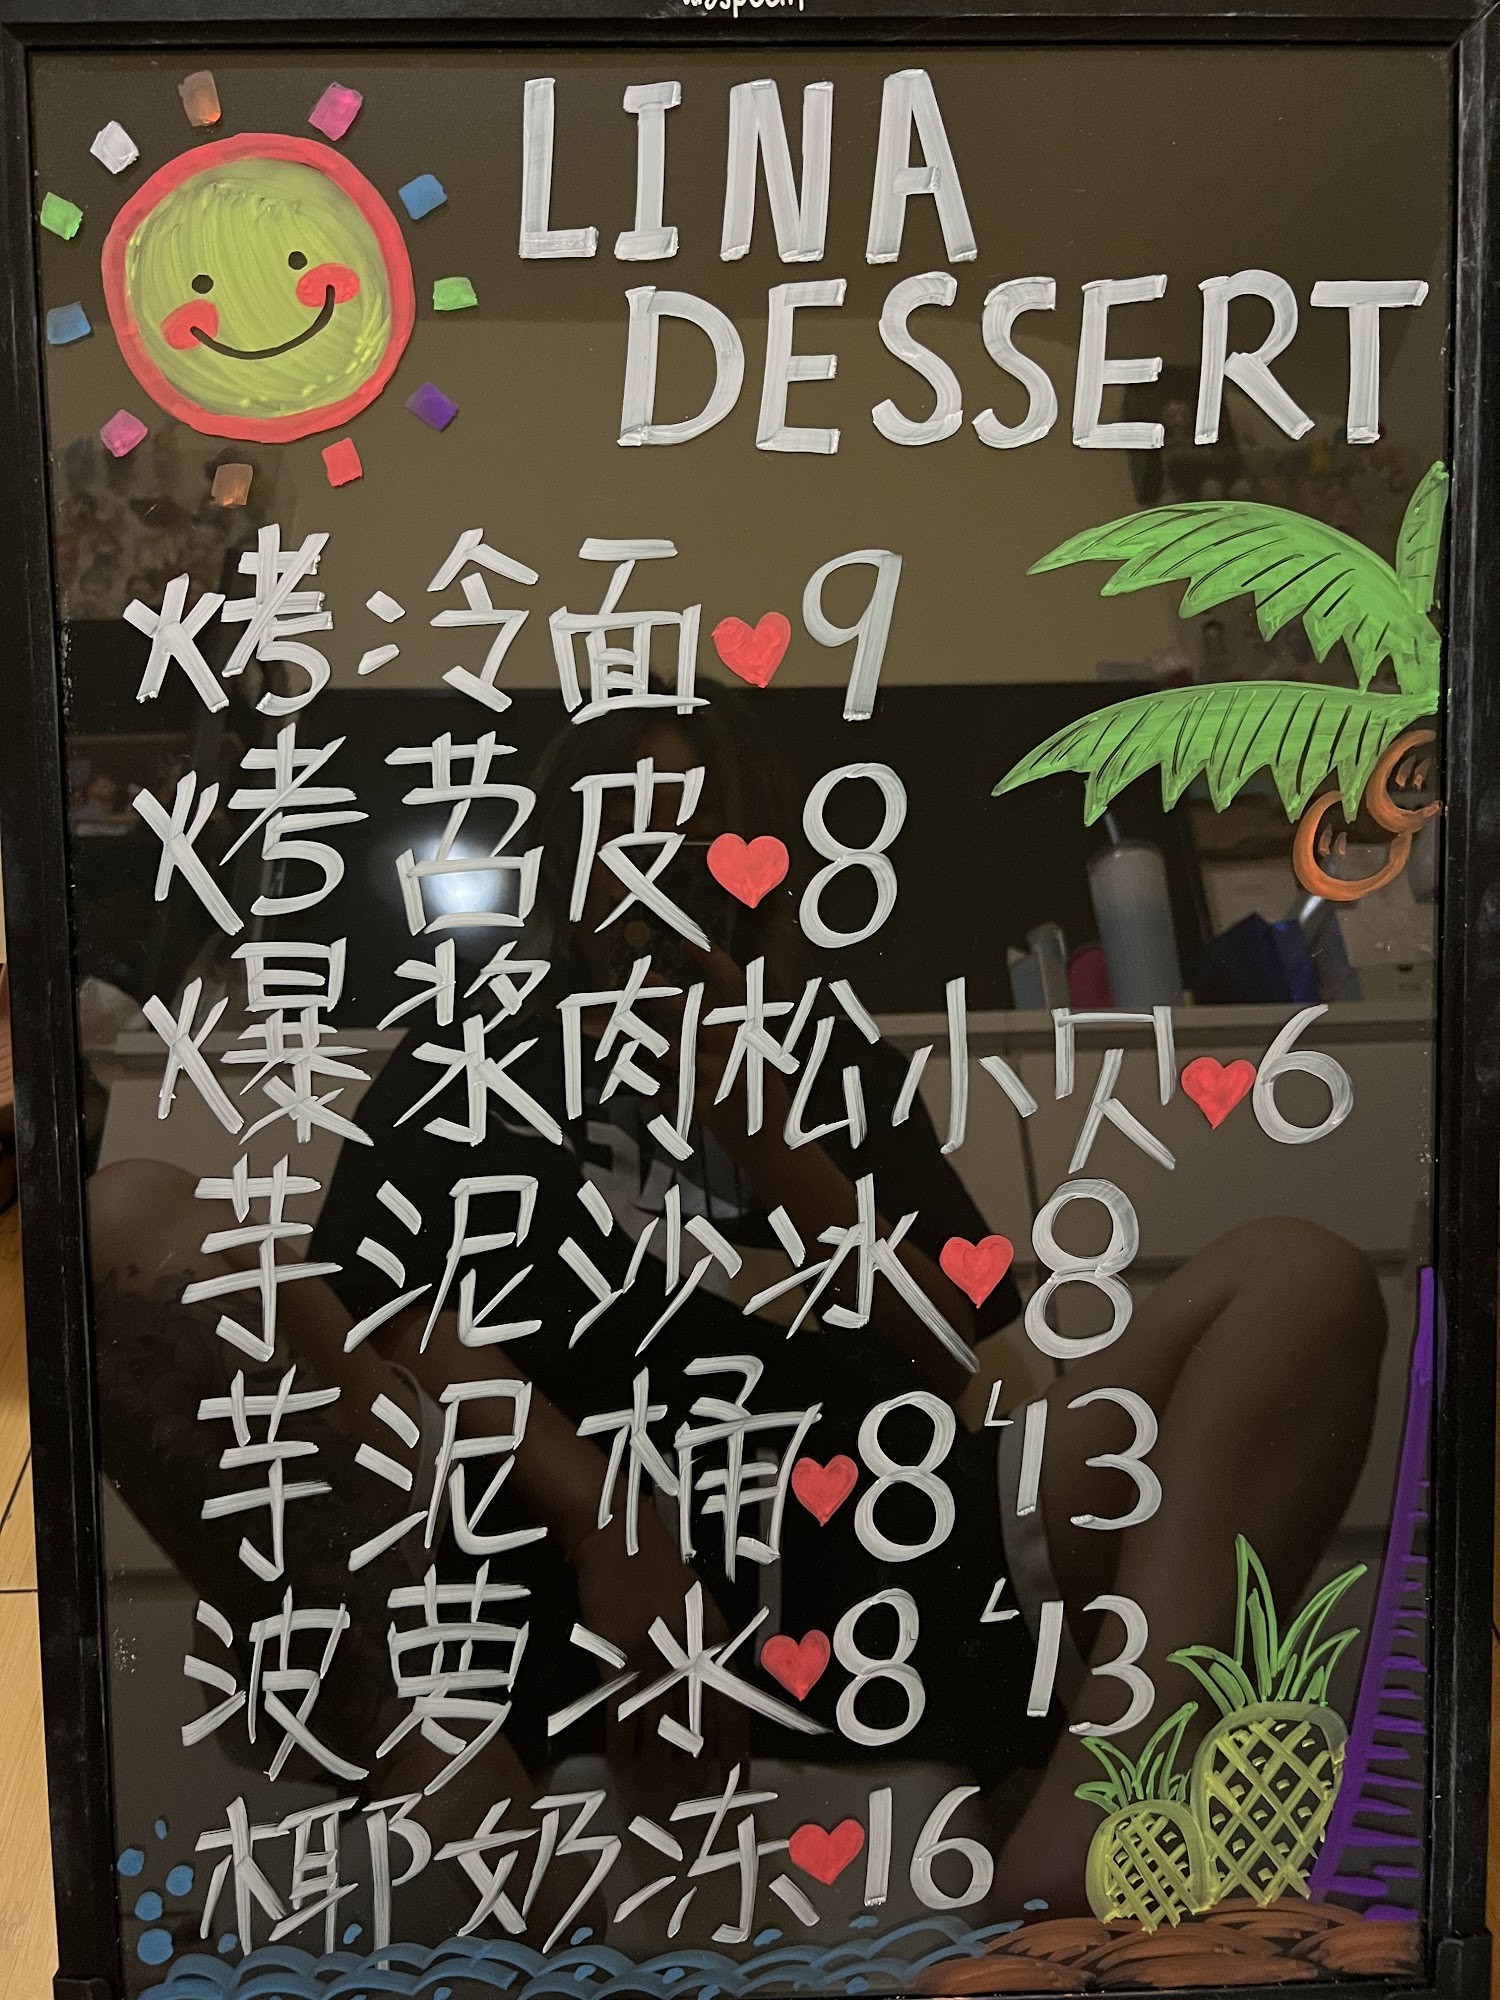 LINA
DESSERT
烤冷面♥9
烤苕皮♥8
爆浆肉松小贝♥6
芋泥沙冰♥8
芋泥桶♥8 '13
菠萝冰♥8 '13
椰奶冻♥16